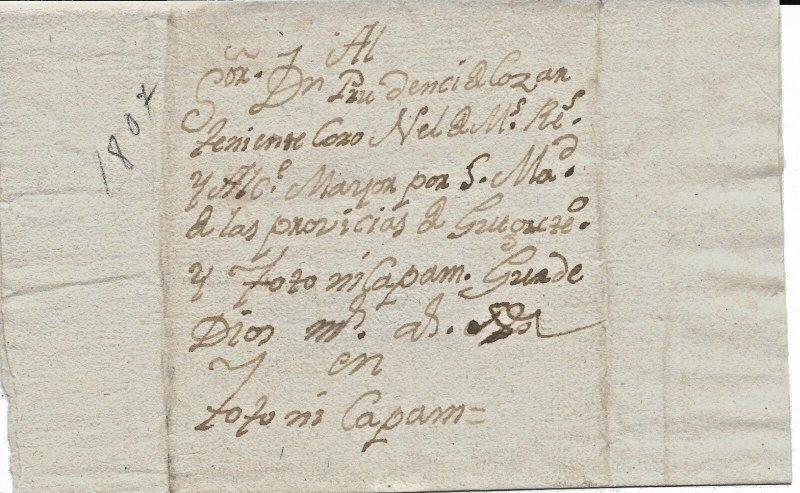 1807
Al
Sõr. Dn Prudenci de Cozar
teniente Coro Nel de Ms. Rs.
y Alcs. Mayor por S. Mad.
de las provicias de Gueguete.
y Toto ni Capam. Guarde
Dios ms. as.
en
toto ni Capam=